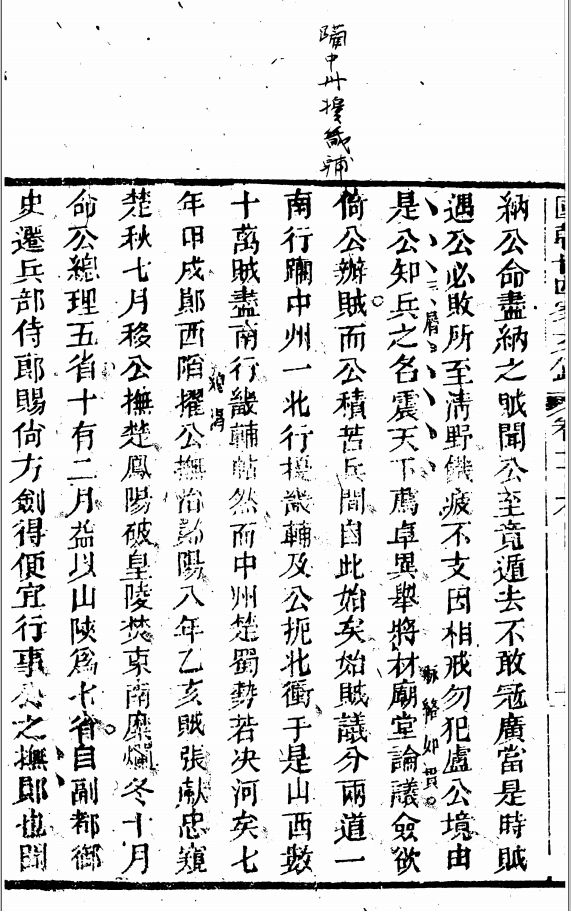 國朝廿四家文鈔 卷十六
納公命盡納之賊聞公至竟遁去不敢冦廣當是時賊
遇公必敗所至淸野饑疲不支因相戒勿犯盧公境由
是公知兵之名震天下薦卓異舉將材廟堂論議僉欲
倚公辦賊而公積苦兵間自此始矣始賊議分兩道一
南行躪中州一北行擾畿輔及公扼北衝于是山西數
十萬賊盡南行畿輔帖然而中州楚蜀勢若决河矣七
年甲戌鄖西陷擢公撫治鄖陽八年乙亥賊張献忠窺
楚秋七月移公撫楚鳳陽破皇陵焚東南糜爛冬十月
命公總理五省十有二月益以山陝爲七省自副都御
史遷兵部侍郎賜尙方劍得便宜行事公之撫鄖也聞
躪中州擾畿輔
三層
脉絡如貫